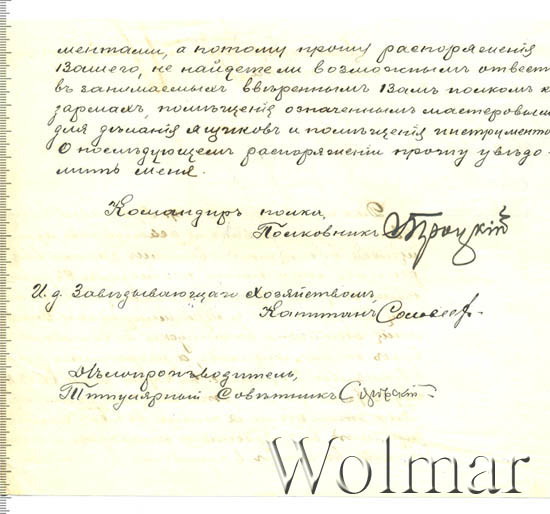 ментами, а потому прошу распоряженія
Вашего, не найдете ли возможнымъ отвести
въ занимаемыхъ ввѣреннымъ Вамъ полкомъ ка
зармахъ, помѣщенія означеннымъ мастеровымъ
для дѣланія ящиковъ и помѣщенія инструменто
О послѣдующемъ распоряженіи прошу увѣдо-
мить меня.
Командиръ полка,
Полковникъ Троцкій
И. д. Завѣдывающаго Хозяйствомъ,
Капитанъ
Дѣлопроизводитель,
Титулярный Совѣтникъ
Wolmar